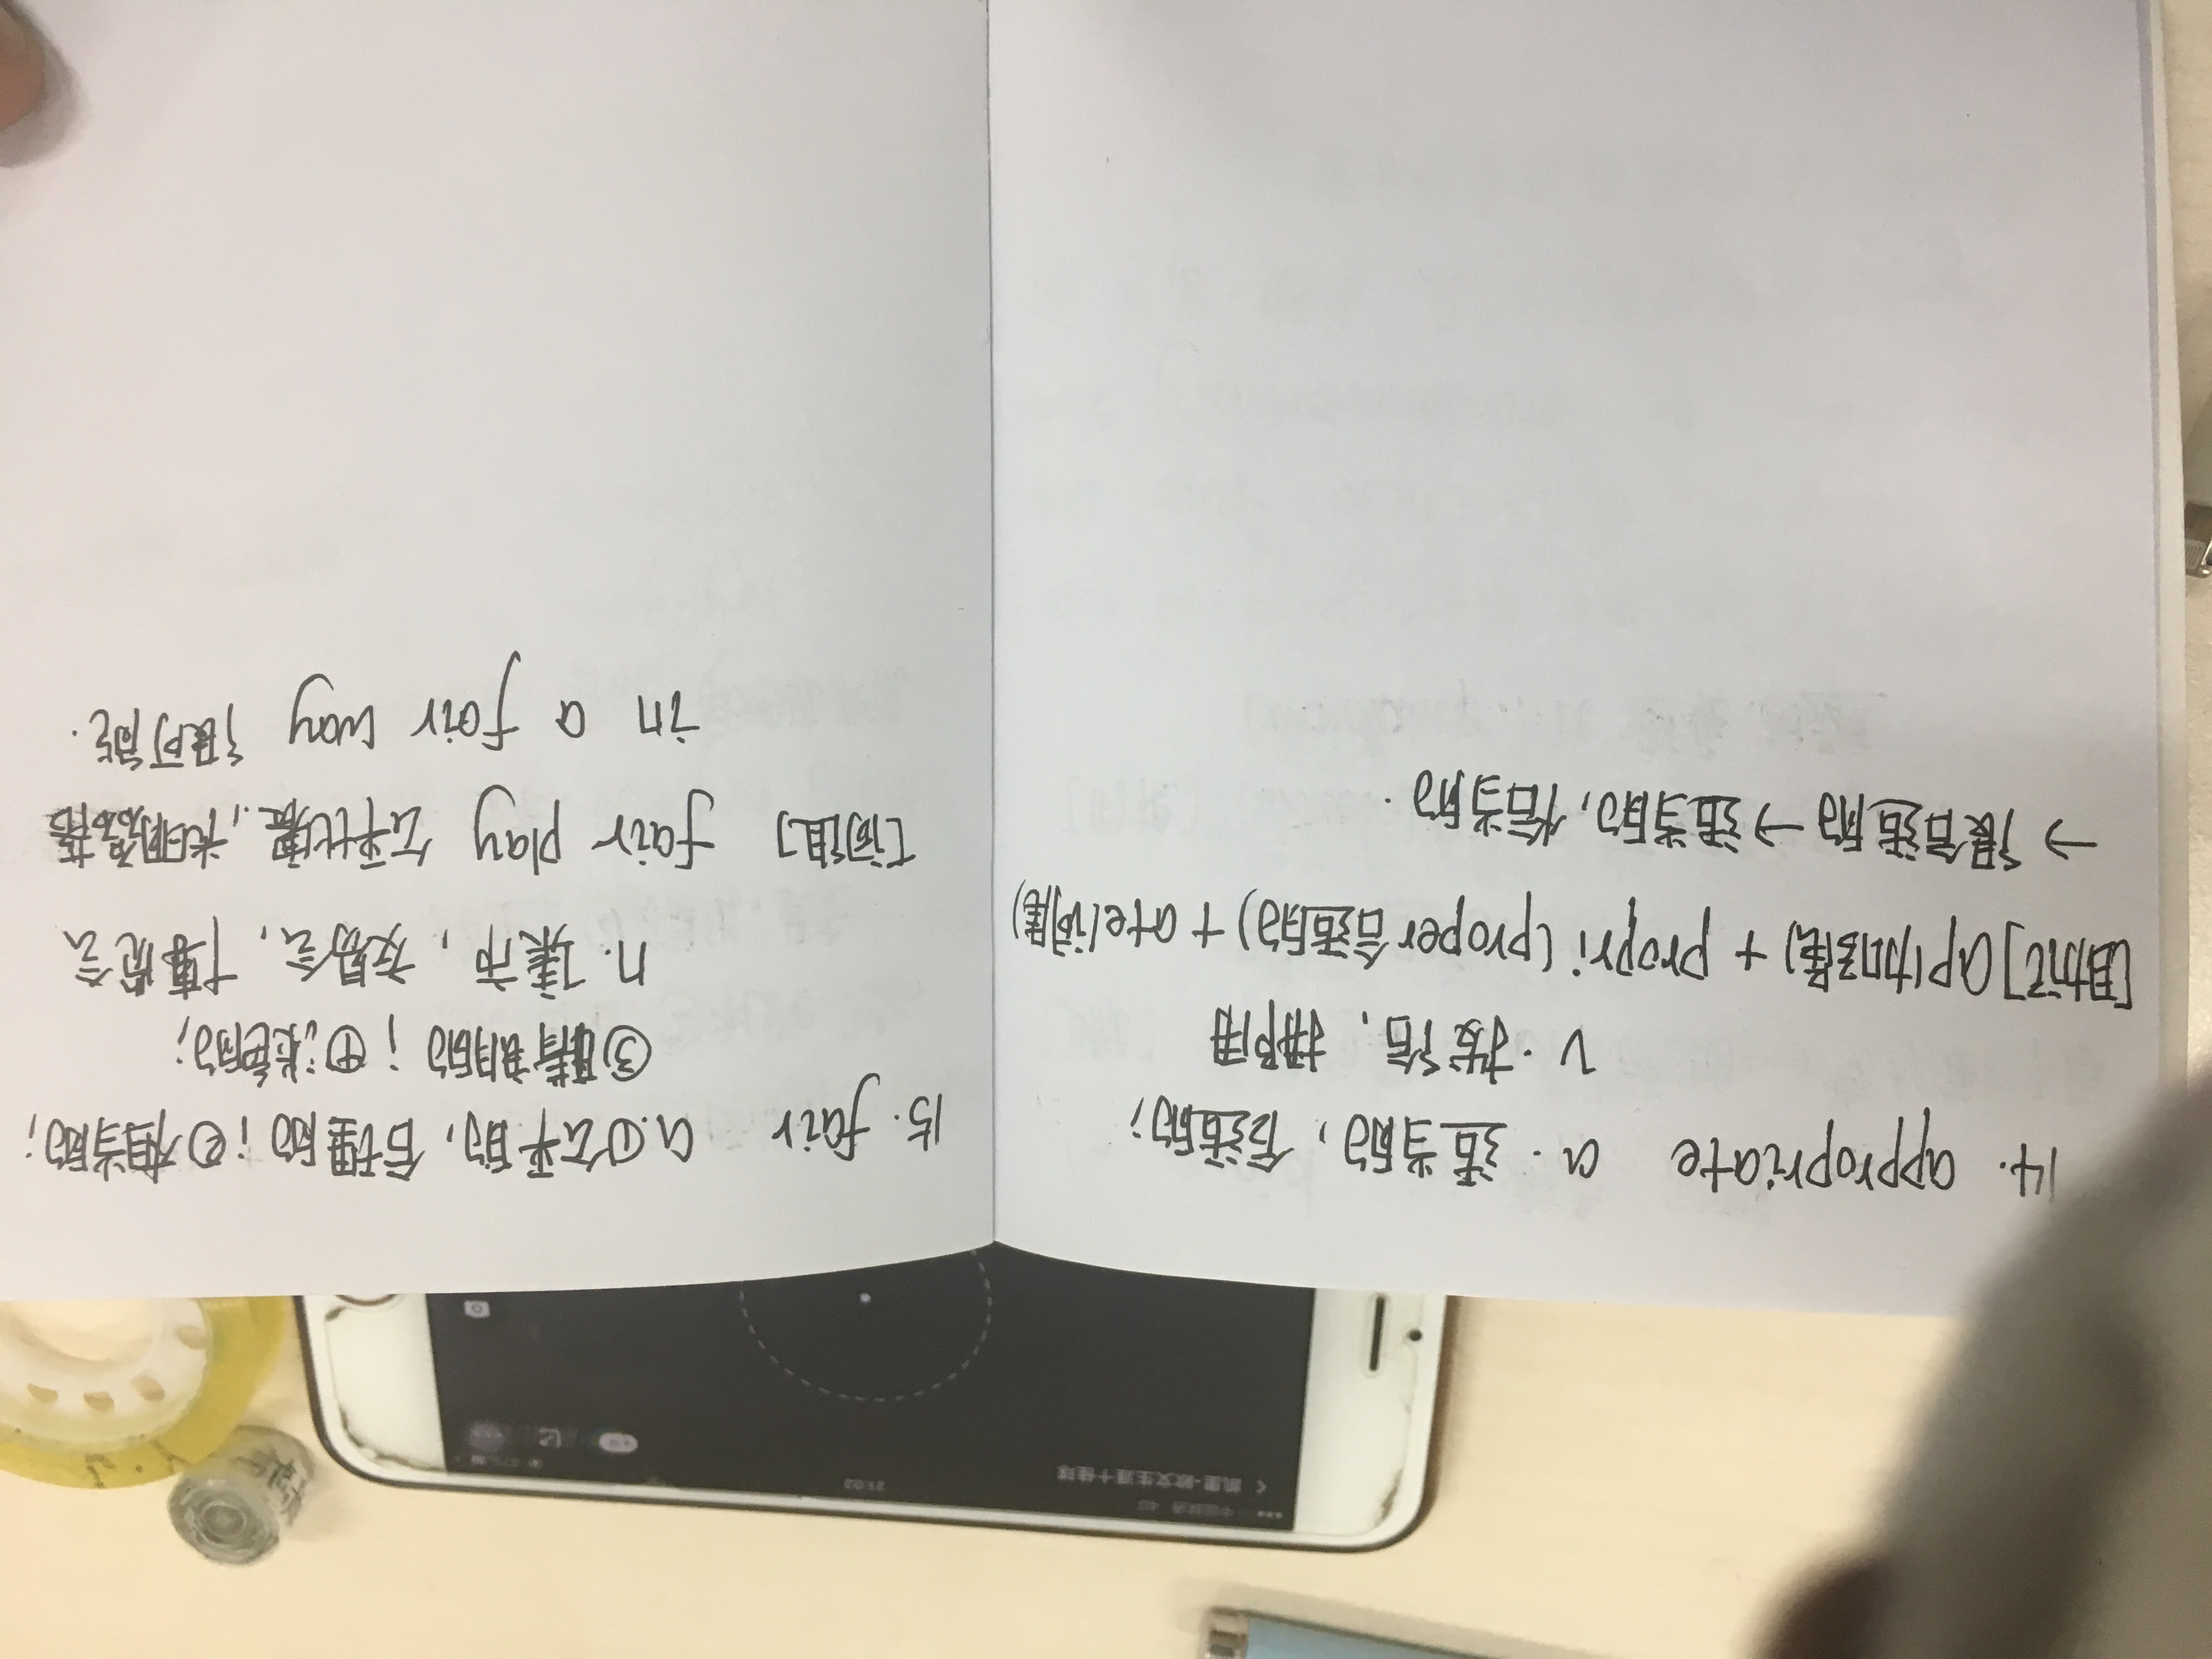 14. appropriate a. 适当的, 合适的;
v. 拨给, 挪用
[助记] ap(加强) + propri (proper合适的) + ate(词尾)
→ 很合适的 → 适当的, 恰当的.
15. fair a.①公平的, 合理的; ②相当的;
③晴朗的; ④浅色的;
n. 集市, 交易会, 博览会
[词组] fair play 公平比赛, 光明磊落
in a fair way 很可能.
21:02
中国联通 4G